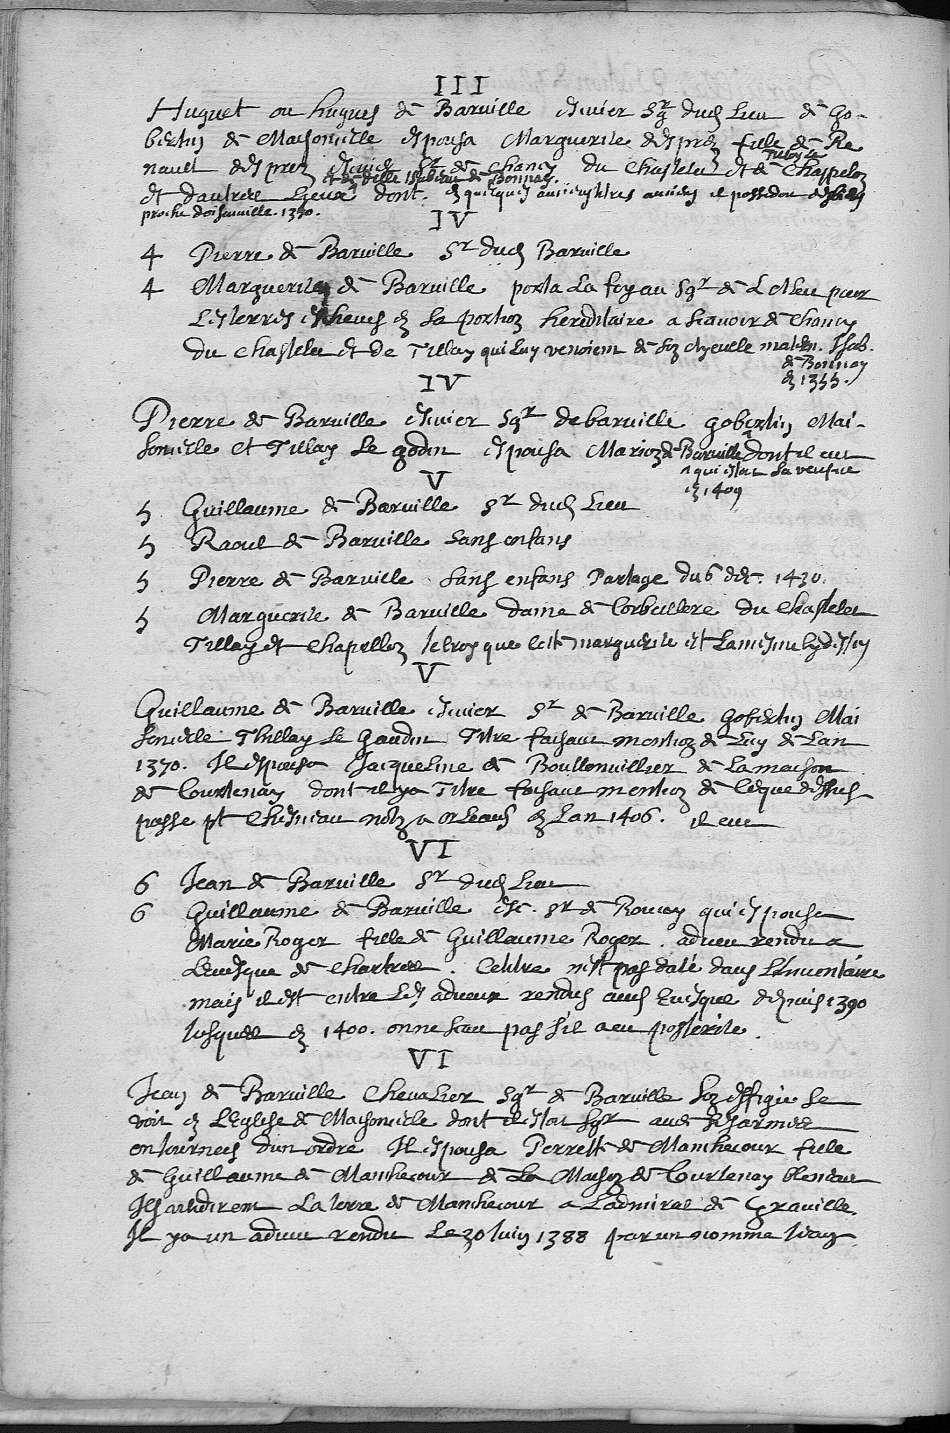 III
Huguet ou hugues de Barville escuier Sgr dud Lieu de Go-
bertin de Maisonville espousa Marguerite desprez fille de Re
nault desprez escuier Sr de Chancy du Chastelet et de Chappelon
Tilloy Le
et de delle Isabeau de Bonnay
et dautres Lieux dont
proche doisonville. 1350.
IV
4 Pierre de Barville Sr dud Barville
4 Marguerite de Barville porta La foy au Sgr de pour
Les terres escheues en sa portion hereditaire a scavoir de Chancy
du Chastelet et de Tillay qui Luy venoient de son ayeulle matern. Isab.
de Bonnay
en 1355.
IV
Pierre de Barville escuier Sgr de barville gobertin Mai-
sonville et Tillay Le godin espousa Marion de Barville dont il eut
qui estoit sa veufue
en 1409
V
5 Guillaume de Barville Sr dud Lieu
5 Raoul de Barville sans enfans
5 Pierre de Barville sans enfans Partage du 6 dec. 1430.
5 Marguerite de Barville dame de Corbeillere du Chastelet
Tillay et Chapellon Je croy que cette marguerite est La mesme cy dessus
V
Guillaume de Barville escuier Sr de Barville gobertin Mai
sonville Thillay Le Gaudin Titre faisant mention de Luy de Lan
1370. Il espousa Jacqueline de Boullenvillier de La maison
de Courtenay dont il ya Titre faisant mention de ce que dessus
passe pt Chesneau notre a orLeans en Lan 1406. il eut
VI
6 Jean de Barville Sr dud Lieu
6 Guillaume de Barville esc. Sr de Roucay qui espousa
Marie Roger fille de Guillaume Roger. adveu rendu a
Levesque de Chartres. Ce titre n'est pas daté dans L'inventaire
mais il est entre Les adveux rendus aud Evesque depuis 1390
Jusques en 1400. on ne scait pas s'il a eu posterité.
VI
Jean de Barville Chevalier Sgr de Barville son effigie se
voit en LEglise de Maisonville dont il estoit Sgr avec ses armes
entournees d'un ordre Il espousa Perrette de Manchecourt fille
de Guillaume de Manchecourt de La Maison de Courtenay bleneau
Ils vendirent La terre de Manchecourt a Ladmiral de Graville.
Il ya un adveu rendu Le 30 Juin 1388 par un nomme Jean